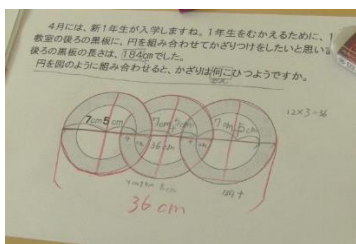 4月には、新1年生が入学しますね。1年生をむかえるために、
教室の後ろの黒板に、円を組み合わせてかざりつけをしたいと思いま
後ろの黒板の長さは、184cmでした。
円を図のように組み合わせると、かざりは何こひつようですか。
12×3=36
7cm 5cm 7cm 5cm 7cm 5cm
36cm
184÷
36cm